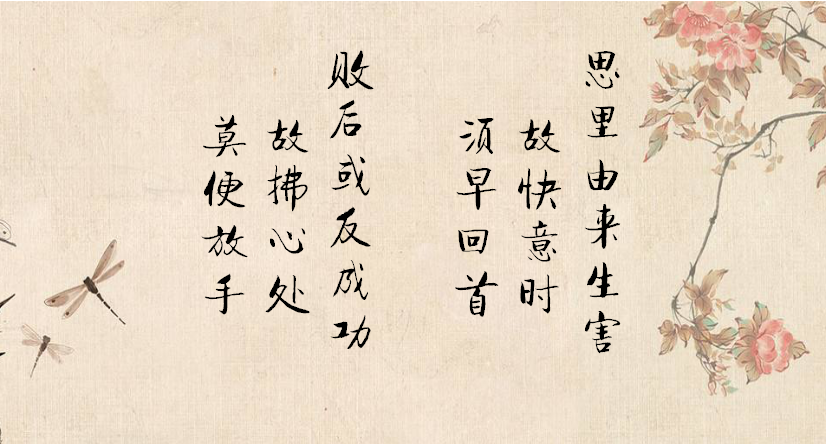 思里由来生害
故快意时
须早回首
败后或反成功
故拂心处
莫便放手